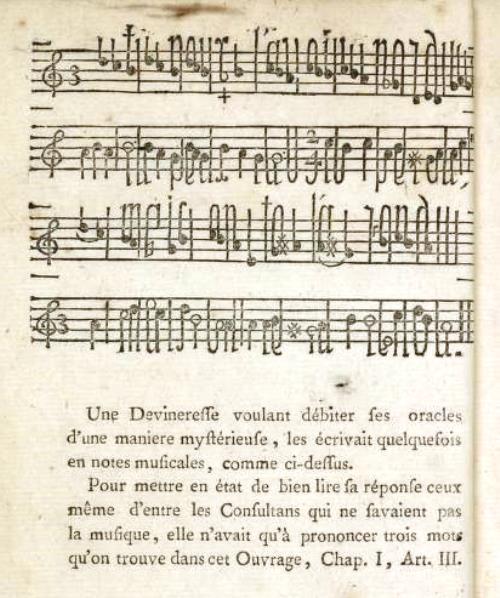 Une Devinereſſe voulant débiter ſes oracles
d'une maniere myſtérieuſe, les écrivait quelquefois
en notes muſicales, comme ci-deſſus.
Pour mettre en état de bien lire ſa réponſe ceux
même d'entre les Conſultans qui ne ſavaient pas
la muſique, elle n'avait qu'à prononcer trois mots
qu'on trouve dans cet Ouvrage, Chap. I, Art. III.